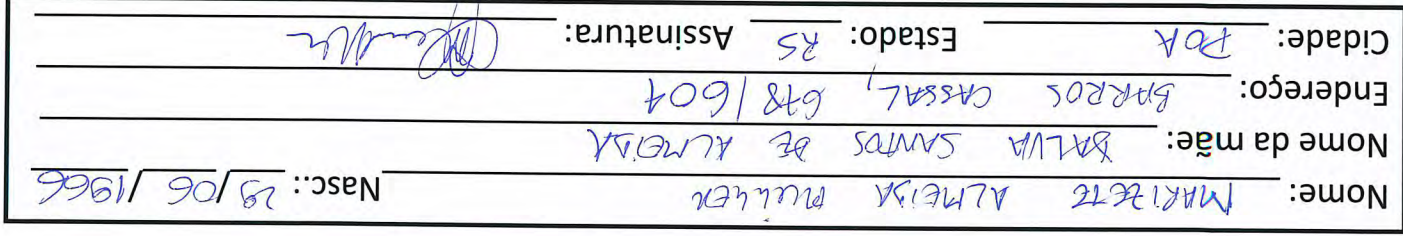 Nome: MARIZETE ALMEIDA MÜLLER Nasc.: 29/06/1966
Nome da mãe: DALVA SANTOS DE ALMEIDA
Endereço: BARROS CASSAL, 678/601
Cidade: POA Estado: RS Assinatura: